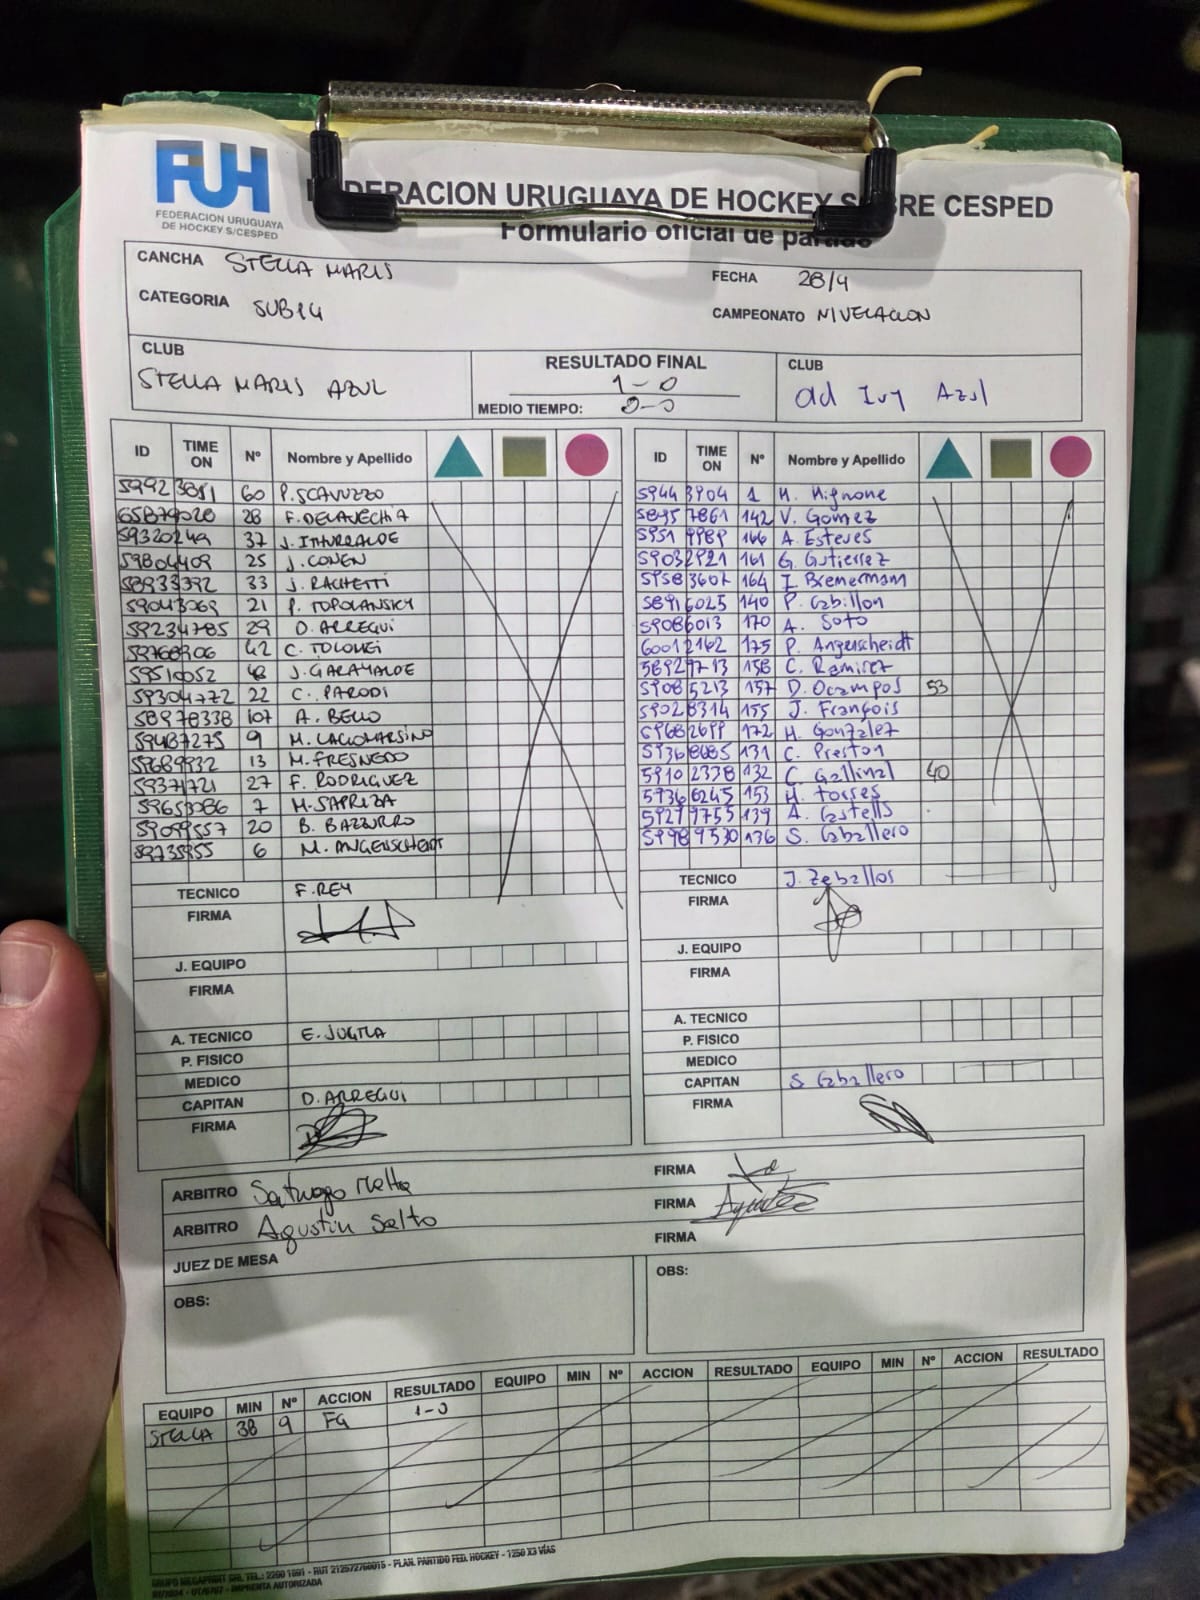 FUH
FEDERACION URUGUAYA
DE HOCKEY S/CESPED
DERACION URUGUAYA DE HOCKEY S BRE CESPED
Formulario oficial de partido
CANCHA STELLA MARIS
FECHA 28/4
CATEGORIA SUB14
CAMPEONATO NIVELACION
CLUB
STELLA MARIS AZUL
RESULTADO FINAL
1-0
MEDIO TIEMPO: 0-0
CLUB
old Ivy Azul
ID TIME ON Nº Nombre y Apellido
60 P. SCAVUZZO
28 F. DELAVECHIA
37 J. ITHURRALDE
59804409 25 J. CONEN
58933392 33 J. RACHETTI
59043069 21 P. TOPOLANSKY
59234785 29 D. ARREGUI
42 C. TOLOMEI
J. GARAYALDE
59304772 22 C. PARODI
58978338 107 A. BELLO
59487275 9 M. LAGOMARSINO
13 M. FRESNEDO
59371721 27 F. RODRIGUEZ
59653086 7 M. SAPRIZA
59099557 20 B. BAZZURRO
6 M. ANGENSCHEIDT
TECNICO F. REY
FIRMA
J. EQUIPO
FIRMA
A. TECNICO
P. FISICO
MEDICO
CAPITAN D. ARREGUI
FIRMA
ID TIME ON Nº Nombre y Apellido
59443904 1 M. Mignone
58457861 142 V. Gomez
166 A. Esteves
59032921 161 G. Gutierrez
164 I Bremermam
58916025 140 P. Cabillon
59086013 170 A. Soto
60012162 175 P. Angerscheidt
58929713 158 C. Ramirez
59085213 157 D. Ocampos 53
59028314 155 J. François
59682699 172 M. Gonzalez
131 C. Preston
59102338 132 C. Gallinal 40
59366245 153 M. Torres
59279755 139 A. Castells
59989530 136 S. Caballero
TECNICO J. Zeballos
FIRMA
J. EQUIPO
FIRMA
A. TECNICO
P. FISICO
MEDICO
CAPITAN S Caballero
FIRMA
ARBITRO Santiago
FIRMA
ARBITRO Agustin Salto
FIRMA
JUEZ DE MESA
FIRMA
OBS:
OBS:
EQUIPO MIN Nº ACCION RESULTADO EQUIPO MIN Nº ACCION RESULTADO EQUIPO MIN Nº ACCION RESULTADO
STELLA 38 9 FG 1-0
PLAN. PARTIDO FED. HOCKEY - 1250 X3 VÍAS
IMPRENTA AUTORIZADA